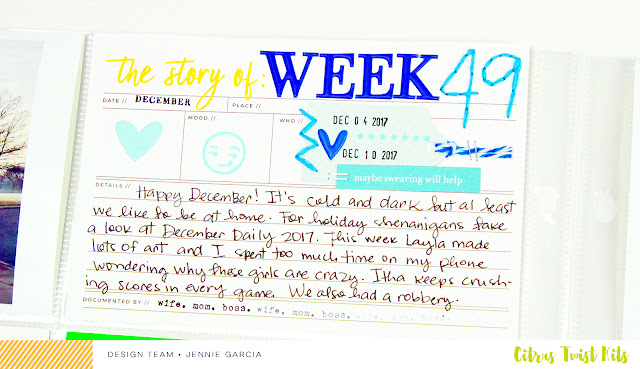 the story of: WEEK 49
DATE // DECEMBER PLACE //
MOOD // WHO //
DEC 04 2017
DEC 10 2017
= maybe swearing will help
DETAILS //
Happy December! It's cold and dark but at least
we like to be at home. For holiday shenanigans take
a look at December Daily 2017. This week Layla made
lots of art and I spent too much time on my phone
wondering why these girls are crazy. Itha keeps crush-
ing scores in every game. We also had a robbery.
DOCUMENTED BY // wife. mom. boss. wife. mom. boss. wife. mom. boss.
DESIGN TEAM • JENNIE GARCIA
Citrus Twist Kits